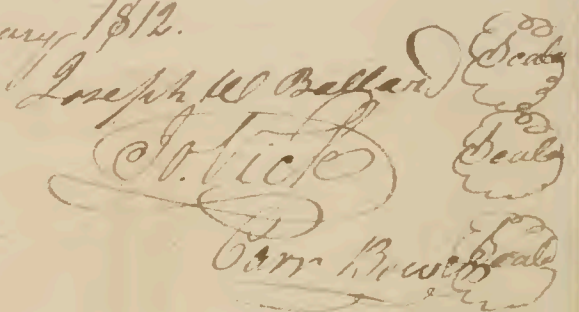 1812.
Joseph W Ballard Seal
Jo. Vick Seal
Carr Bowers Seal